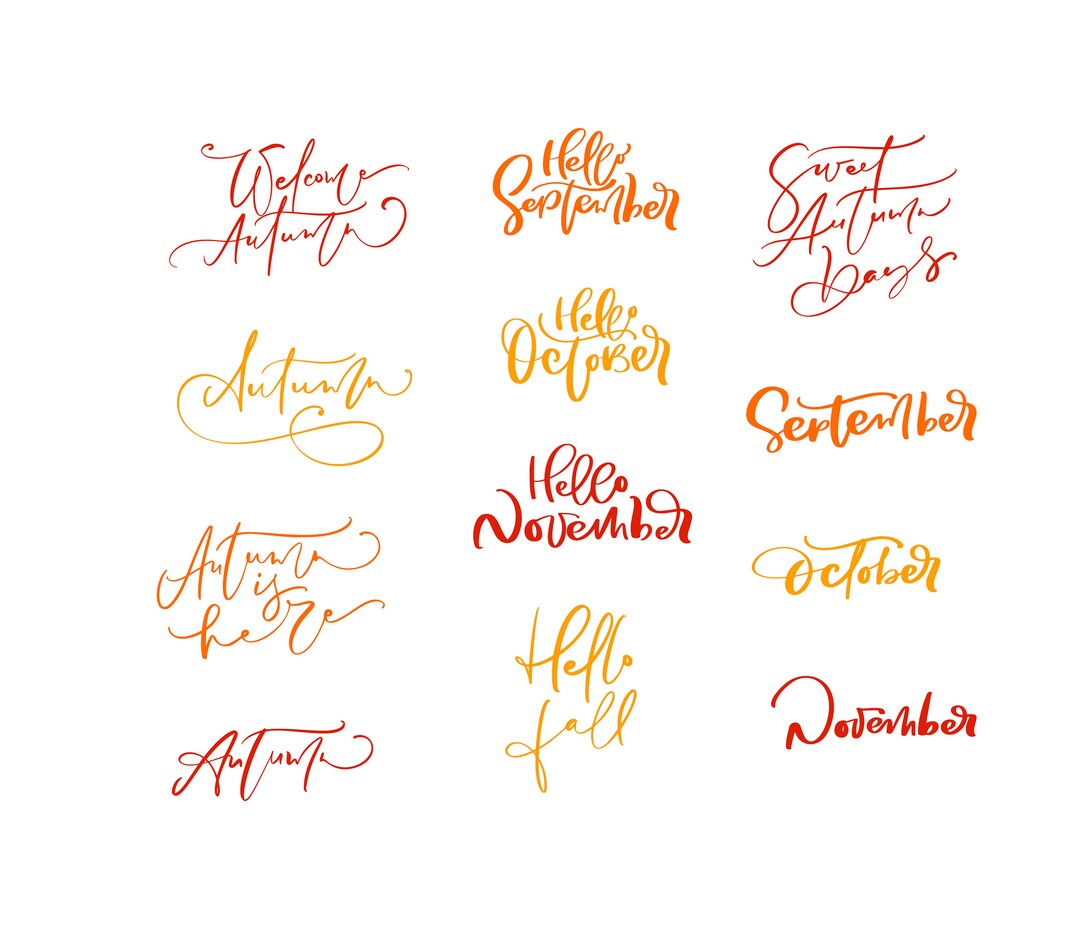 Welcome
Autumn
Autumn
Autumn
is
here
Autumn
Hello
September
Hello
October
Hello
November
Hello
fall
Sweet
Autumn
Days
September
October
November